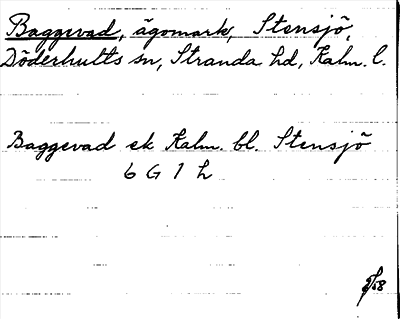 Baggevad, ägomark, Stensjö,
Döderhults sn, Stranda hd, Kalm. l.
Baggevad ek Kalm. bl. Stensjö
6 G 1 h